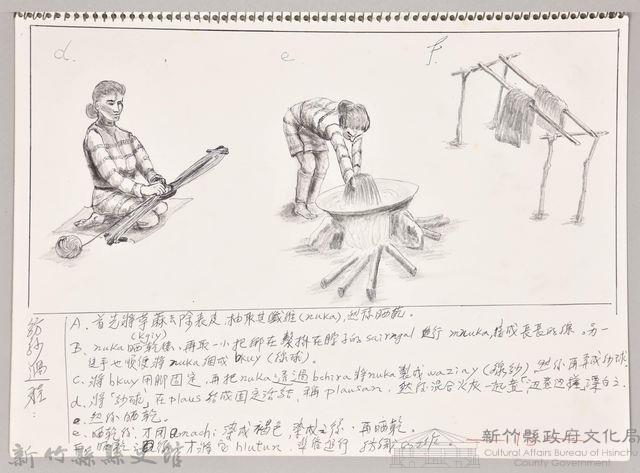 d. e. f.
紡紗過程：
A. 首先將苧蔴去除表皮, 抽取其纖維(nuka), 然後晒乾。
(kgiy)
B. nuka 晒乾後, 再取一小把綁在 sairagal 進行 mnuka, 搓成長長的線。另一
隻手也慢慢將nuka捆成 bkuy (線球)。
C. 將 bkuy 用腳固定, 再把 nuka 通過 bchira 將 nuka 製成 waziay (線紗), 然後再弄成紗球。
d. 將「紗球」在 plaus 結成固定活結, 稱 plausan, 然後混合火灰一起煮, 邊煮邊攪, 漂白之。
e. 然後晒乾。
e. 晒乾後, 才用 machi 染成褐色, 染成之後, 再晒乾。
晒乾 才將它 hlutun 進行 紡織
新竹縣縣史館
新竹縣政府文化局
Cultural Affairs Bureau of Hsinchu
County Government